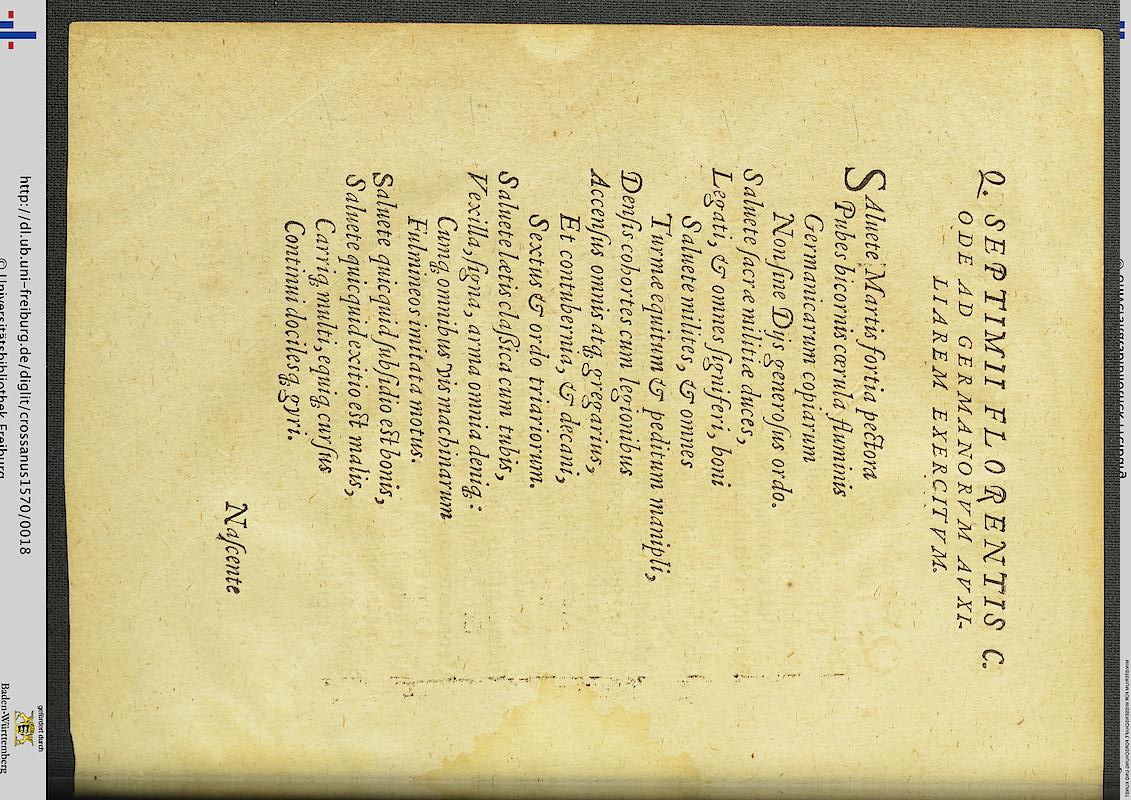 Q. SEPTIMII FLORENTIS C.
ODE AD GERMANORVM AVXI-
LIAREM EXERCITVM.
SAluete Martis fortia pectora
Pubes bicornis cærula fluminis
Germanicarum copiarum
Non sine Dijs generosus ordo.
Saluete sacræ militiæ duces,
Legati, & omnes signiferi, boni
Saluete milites, & omnes
Turmæ equitum & peditum manipli,
Densis cohortes cum legionibus
Accensus omnis atq; gregarius,
Et contubernia, & decani,
Sextus & ordo triariorum.
Saluete lætis classica cum tubis,
Vexilla, signa, arma omnia deniq;:
Cumq; omnibus vis machinarum
Fulmineos imitata motus.
Saluete quicquid subsidio est bonis,
Saluete quicquid exitio est malis,
Carriq; multi, equiq; cursus
Continui docilesq; gyri.
Nascente
http://dl.ub.uni-freiburg.de/diglit/crossanus1570/0018
© Universitätsbibliothek Freiburg
gefördert durch
Baden-Württemberg